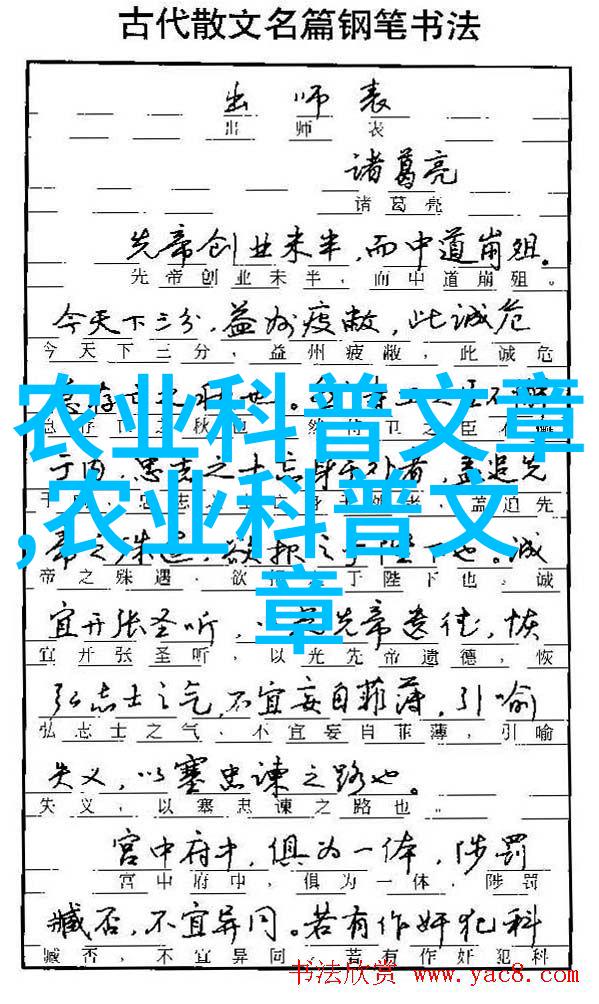 古代散文名篇钢笔书法
出师表
出师表
诸葛亮
诸葛亮
先帝创业未半，而中道崩殂。
先帝创业未半，而中道崩殂。
今天下三分，益州疲敝，此诚危
今天下三分，益州疲敝，此诚危
农业科普文章
之秋也 卫之臣
于内，忠志之士忘身于外者，盖追先
盖追先
,农业科普文
帝之殊遇，欲报之于陛下也。诚
帝之殊遇，欲 于陛下也，诚
章
宜开张圣听，以光先帝遗德，恢
宜开张圣听，以光先帝遗德，恢
弘志士之气，不宜妄自菲薄，引喻
弘志士之气，不宜妄自菲薄，引喻
失义，以塞忠谏之路也。
失义，以塞忠谏之路也。
宫中府中，俱为一体，陟罚
宫中府中，俱为一体，陟罚
臧否，不宜异同。若有作奸犯科
臧否，不宜异同，若有作奸犯科
书法欣赏 www.yac8.com